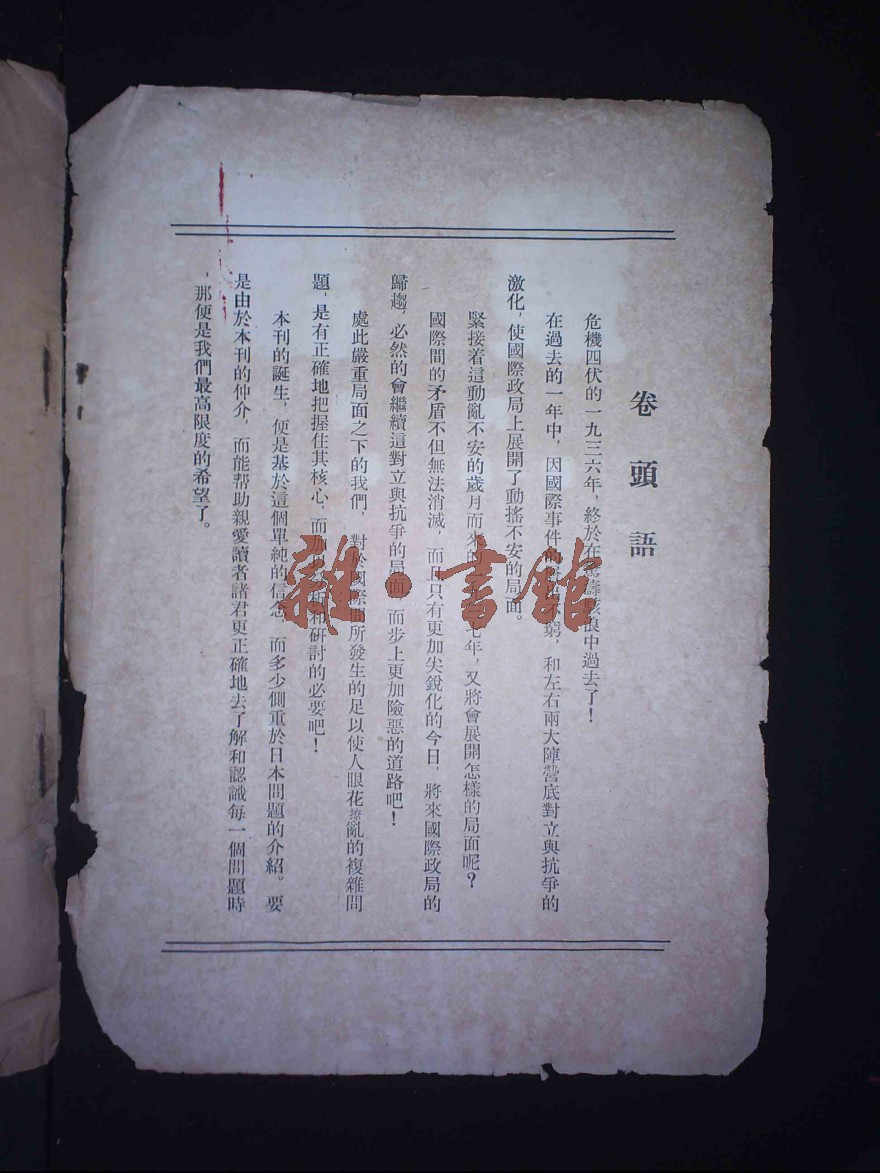 卷頭語
危機四伏的一九三六年，終於在駭浪中過去了！
在過去的一年中，因國際事件的不窮，和左右兩大陣營底對立與抗爭的
激化，使國際政局上展開了動搖不安的局面。
緊接着這動亂不安的歲月而來的七年，又將會展開怎樣的局面呢？
國際間的矛盾不但無法消滅，而且只有更加尖銳化的今日，將來國際政局的
歸趨，必然的會繼續這對立與抗爭的局面，而步上更加險惡的道路吧！
處此嚴重局面之下的我們，對於國際間所發生的足以使人眼花撩亂的複雜問
題，是有正確地把握住其核心，而加以和研討的必要吧！
本刊的誕生，便是基於這個單純的信念，而多少側重於日本問題的介紹。要
是由於本刊的仲介，而能帮助親愛讀者諸君更正確地去了解和認識每一個問題時
，那便是我們最高限度的希望了。
雜·書館